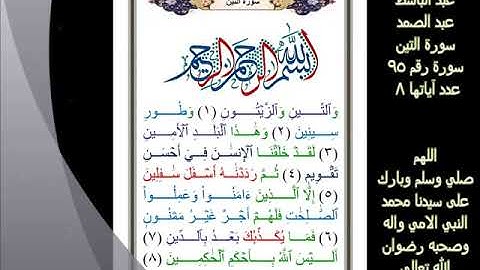 سورة التين
بسم الله الرحمن الرحيم
وَالتِّينِ وَالزَّيْتُونِ (١) وَطُورِ
سِينِينَ (٢) وَهَٰذَا الْبَلَدِ الْأَمِينِ
(٣) لَقَدْ خَلَقْنَا الْإِنسَٰنَ فِي أَحْسَنِ
تَقْوِيمٍ (٤) ثُمَّ رَدَدْنَٰهُ أَسْفَلَ سَٰفِلِينَ
(٥) إِلَّا الَّذِينَ ءَامَنُوا وَعَمِلُوا
الصَّٰلِحَٰتِ فَلَهُمْ أَجْرٌ غَيْرُ مَمْنُونٍ
(٦) فَمَا يُكَذِّبُكَ بَعْدُ بِالدِّينِ (٧)
أَلَيْسَ اللَّهُ بِأَحْكَمِ الْحَٰكِمِينَ (٨)
عبد الباسط
عبد الصمد
سورة التين
سورة رقم ٩٥
عدد آياتها ٨
اللهم
صلي وسلم وبارك
على سيدنا محمد
النبي الامي واله
وصحبه رضوان
الله تعالى